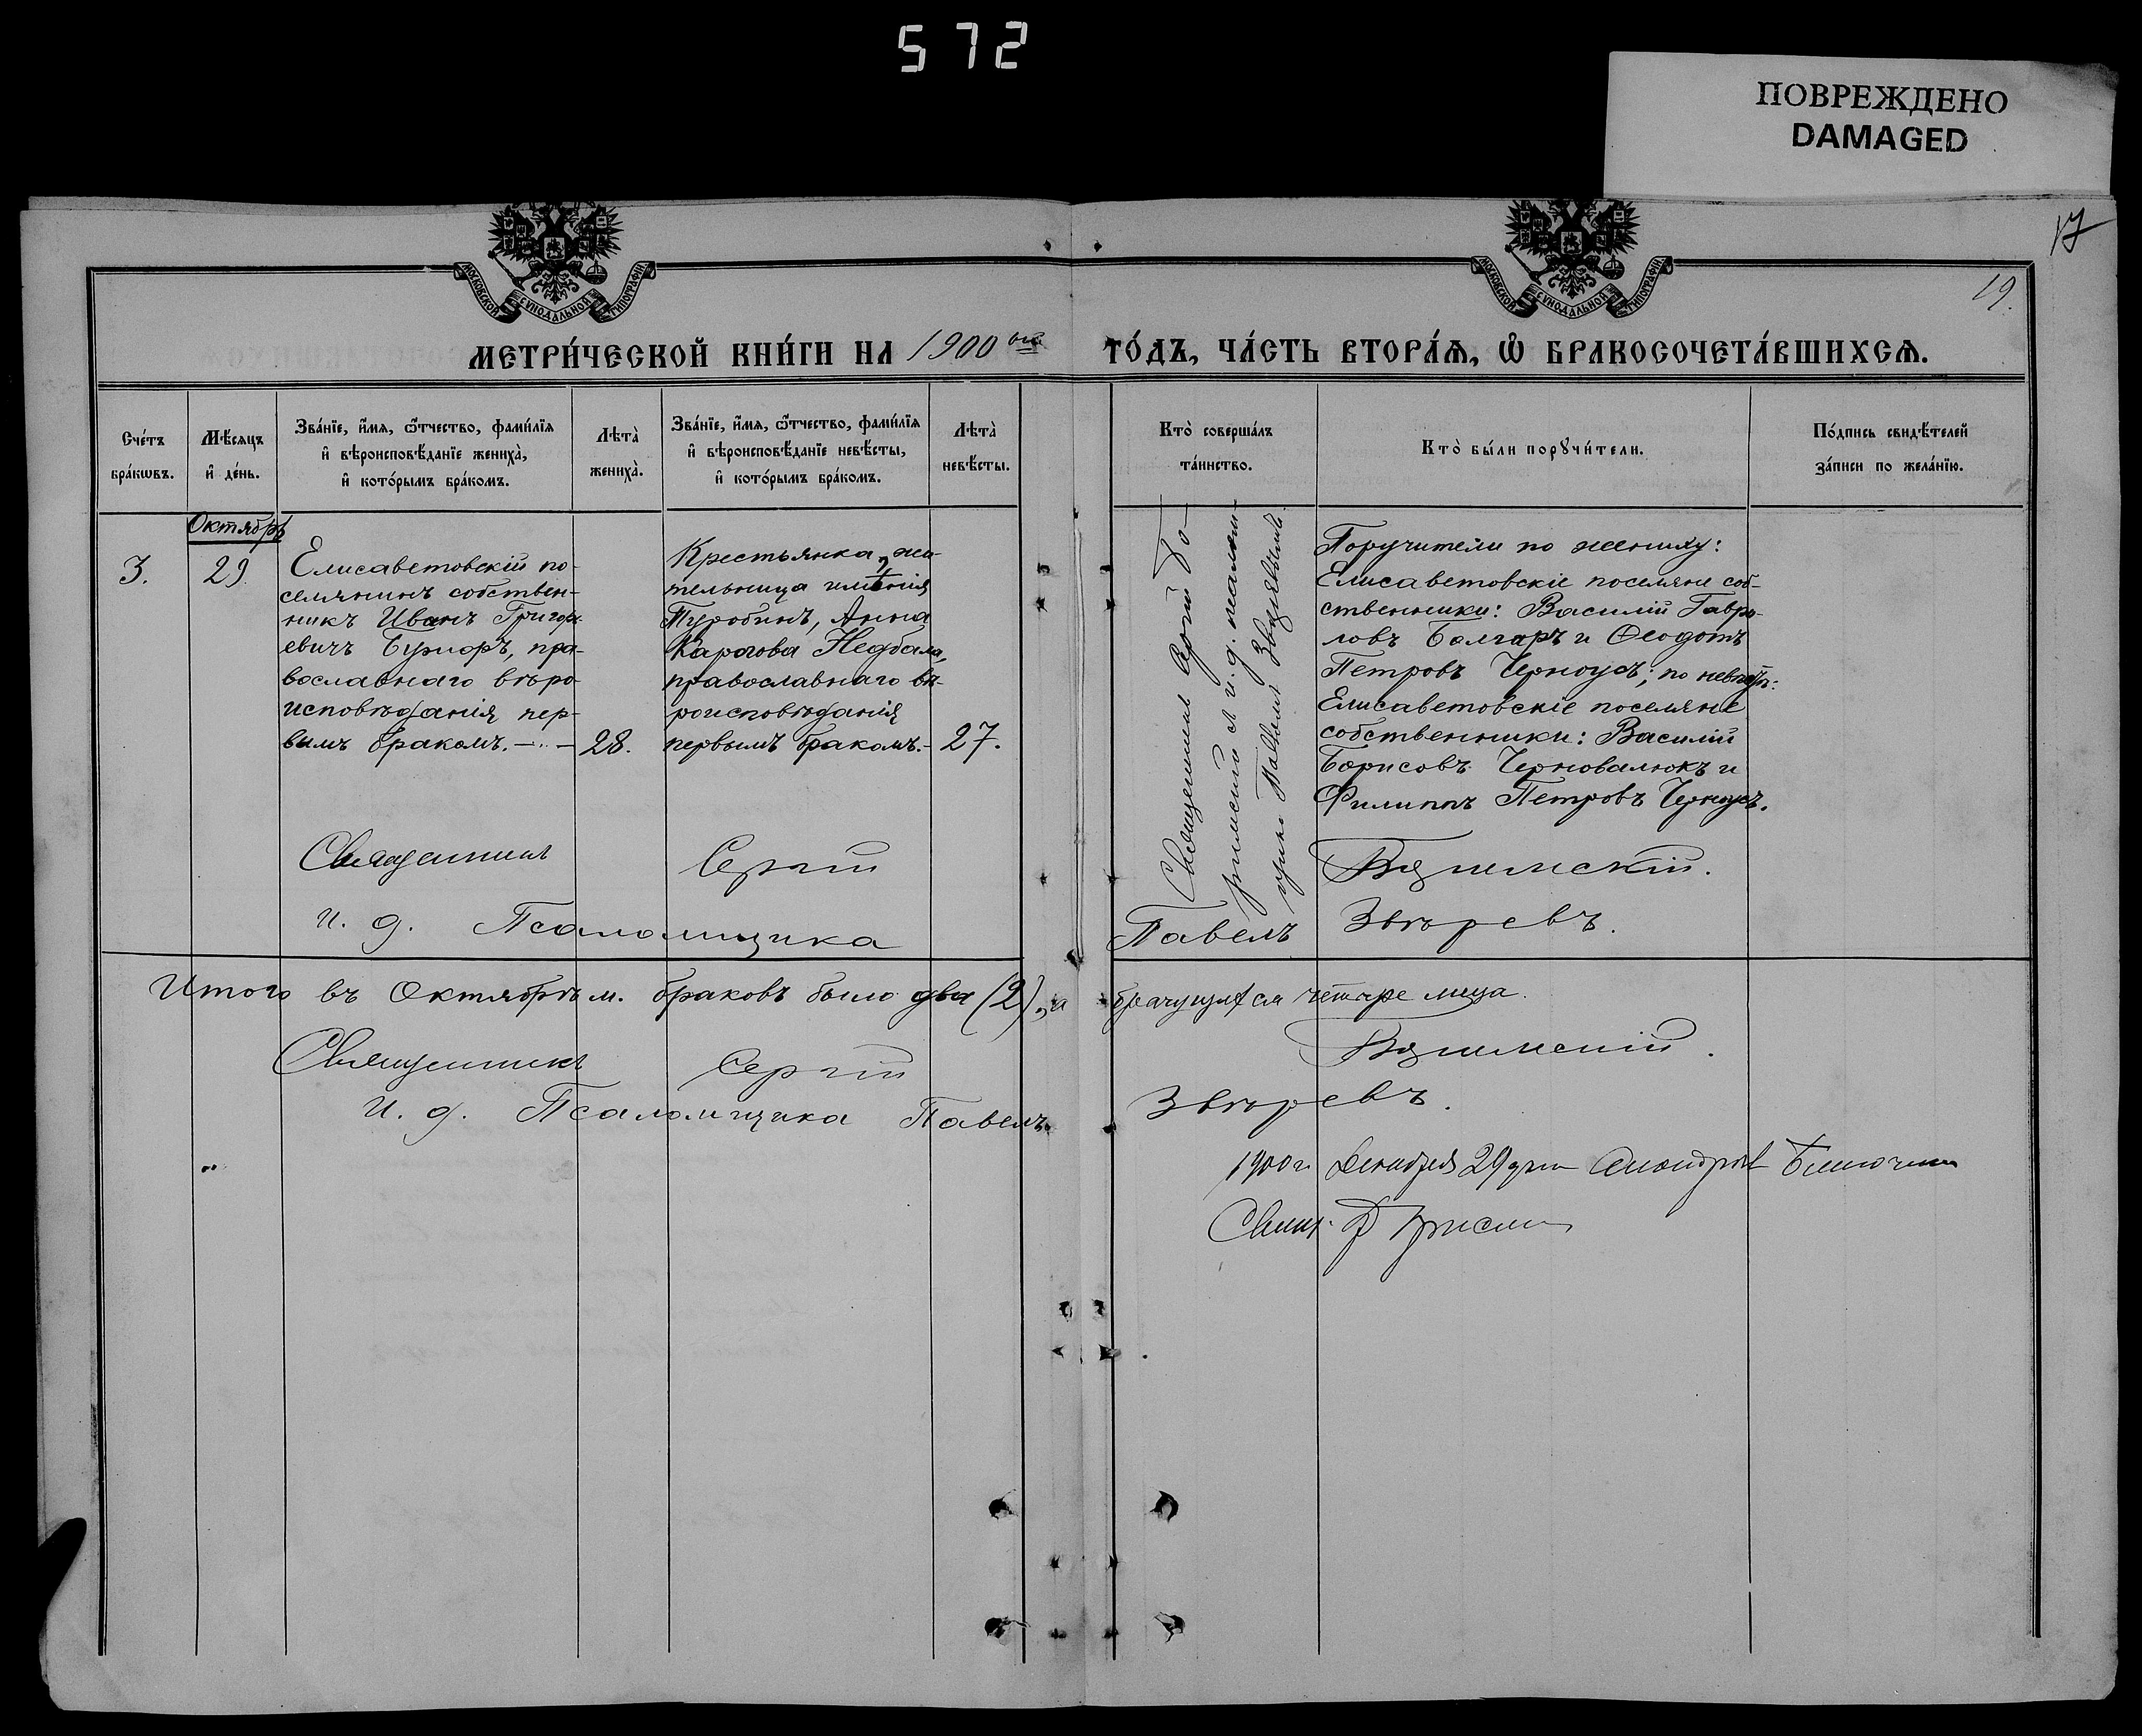 572
ПОВРЕЖДЕНО
DAMAGED
17
19.
МОСКОВСКОЙ СѴНОДАЛЬНОЙ ТИПОГРАФІИ
МОСКОВСКОЙ СѴНОДАЛЬНОЙ ТИПОГРАФІИ
МЕТРИ́ЧЕСКОЙ КНИ́ГИ НА 1900 ый ГО́ДЪ, ЧА́СТЬ ВТОРА́Ѧ, Ѽ БРАКОСОЧЕТА́ВШИХСѦ.
Сче́тъ
бра́кѡвъ.
Мѣ́сяцъ
и҆ де́нь.
Зва́нїе, и҆́мя, ѻ҆́тчество, фами́лїя
и҆ вѣроисповѣ́данїе жениха̀,
и҆ кото́рымъ бра́комъ.
Лѣта̀
жениха̀.
Зва́нїе, и҆́мя, ѻ҆́тчество, фами́лїя
и҆ вѣроисповѣ́данїе невѣ́сты,
и҆ кото́рымъ бра́комъ.
Лѣта̀
невѣ́сты.
Кто̀ соверша́лъ
та́инство.
Кто̀ бы́ли порꙋчи́тели.
По́дпись свидѣ́телей
за́писи по жела́нїю.
Октябрь
3.
29.
Елисаветовскій по-
селянинъ собствен-
никъ Иванъ Григорь-
евичъ, пра-
вославнаго вѣро-
исповѣданія пер-
вымъ бракомъ. —
28.
Крестьянка, жи-
тельница имѣнія
Туробинъ, Анна
Карпова Недбала,
православнаго вѣ-
роисповѣданія
первымъ бракомъ. -
27.
Священникъ Сергій
и. д. псалом-
щика Павелъ
Поручители по жениху:
Елисаветовскіе поселяне соб-
ственники: Василій Гаври-
ловъ Болгаръ и Ѳеодотъ
Петровъ Черноусъ; по невѣстѣ:
Елисаветовскіе поселяне
собственники: Василій
Борисовъ Черновалюкъ и
Филиппъ Петровъ Черноусъ.
Священникъ Сергій
и. д. Псаломщика Павелъ Звѣревъ.
Итого въ Октябрѣ м. браковъ было два (2), а брачущихся четыре лица.
Священникъ Сергій
и. д. Псаломщика Павелъ Звѣревъ.
1900 г. Декабря 29 дня
Свящ.